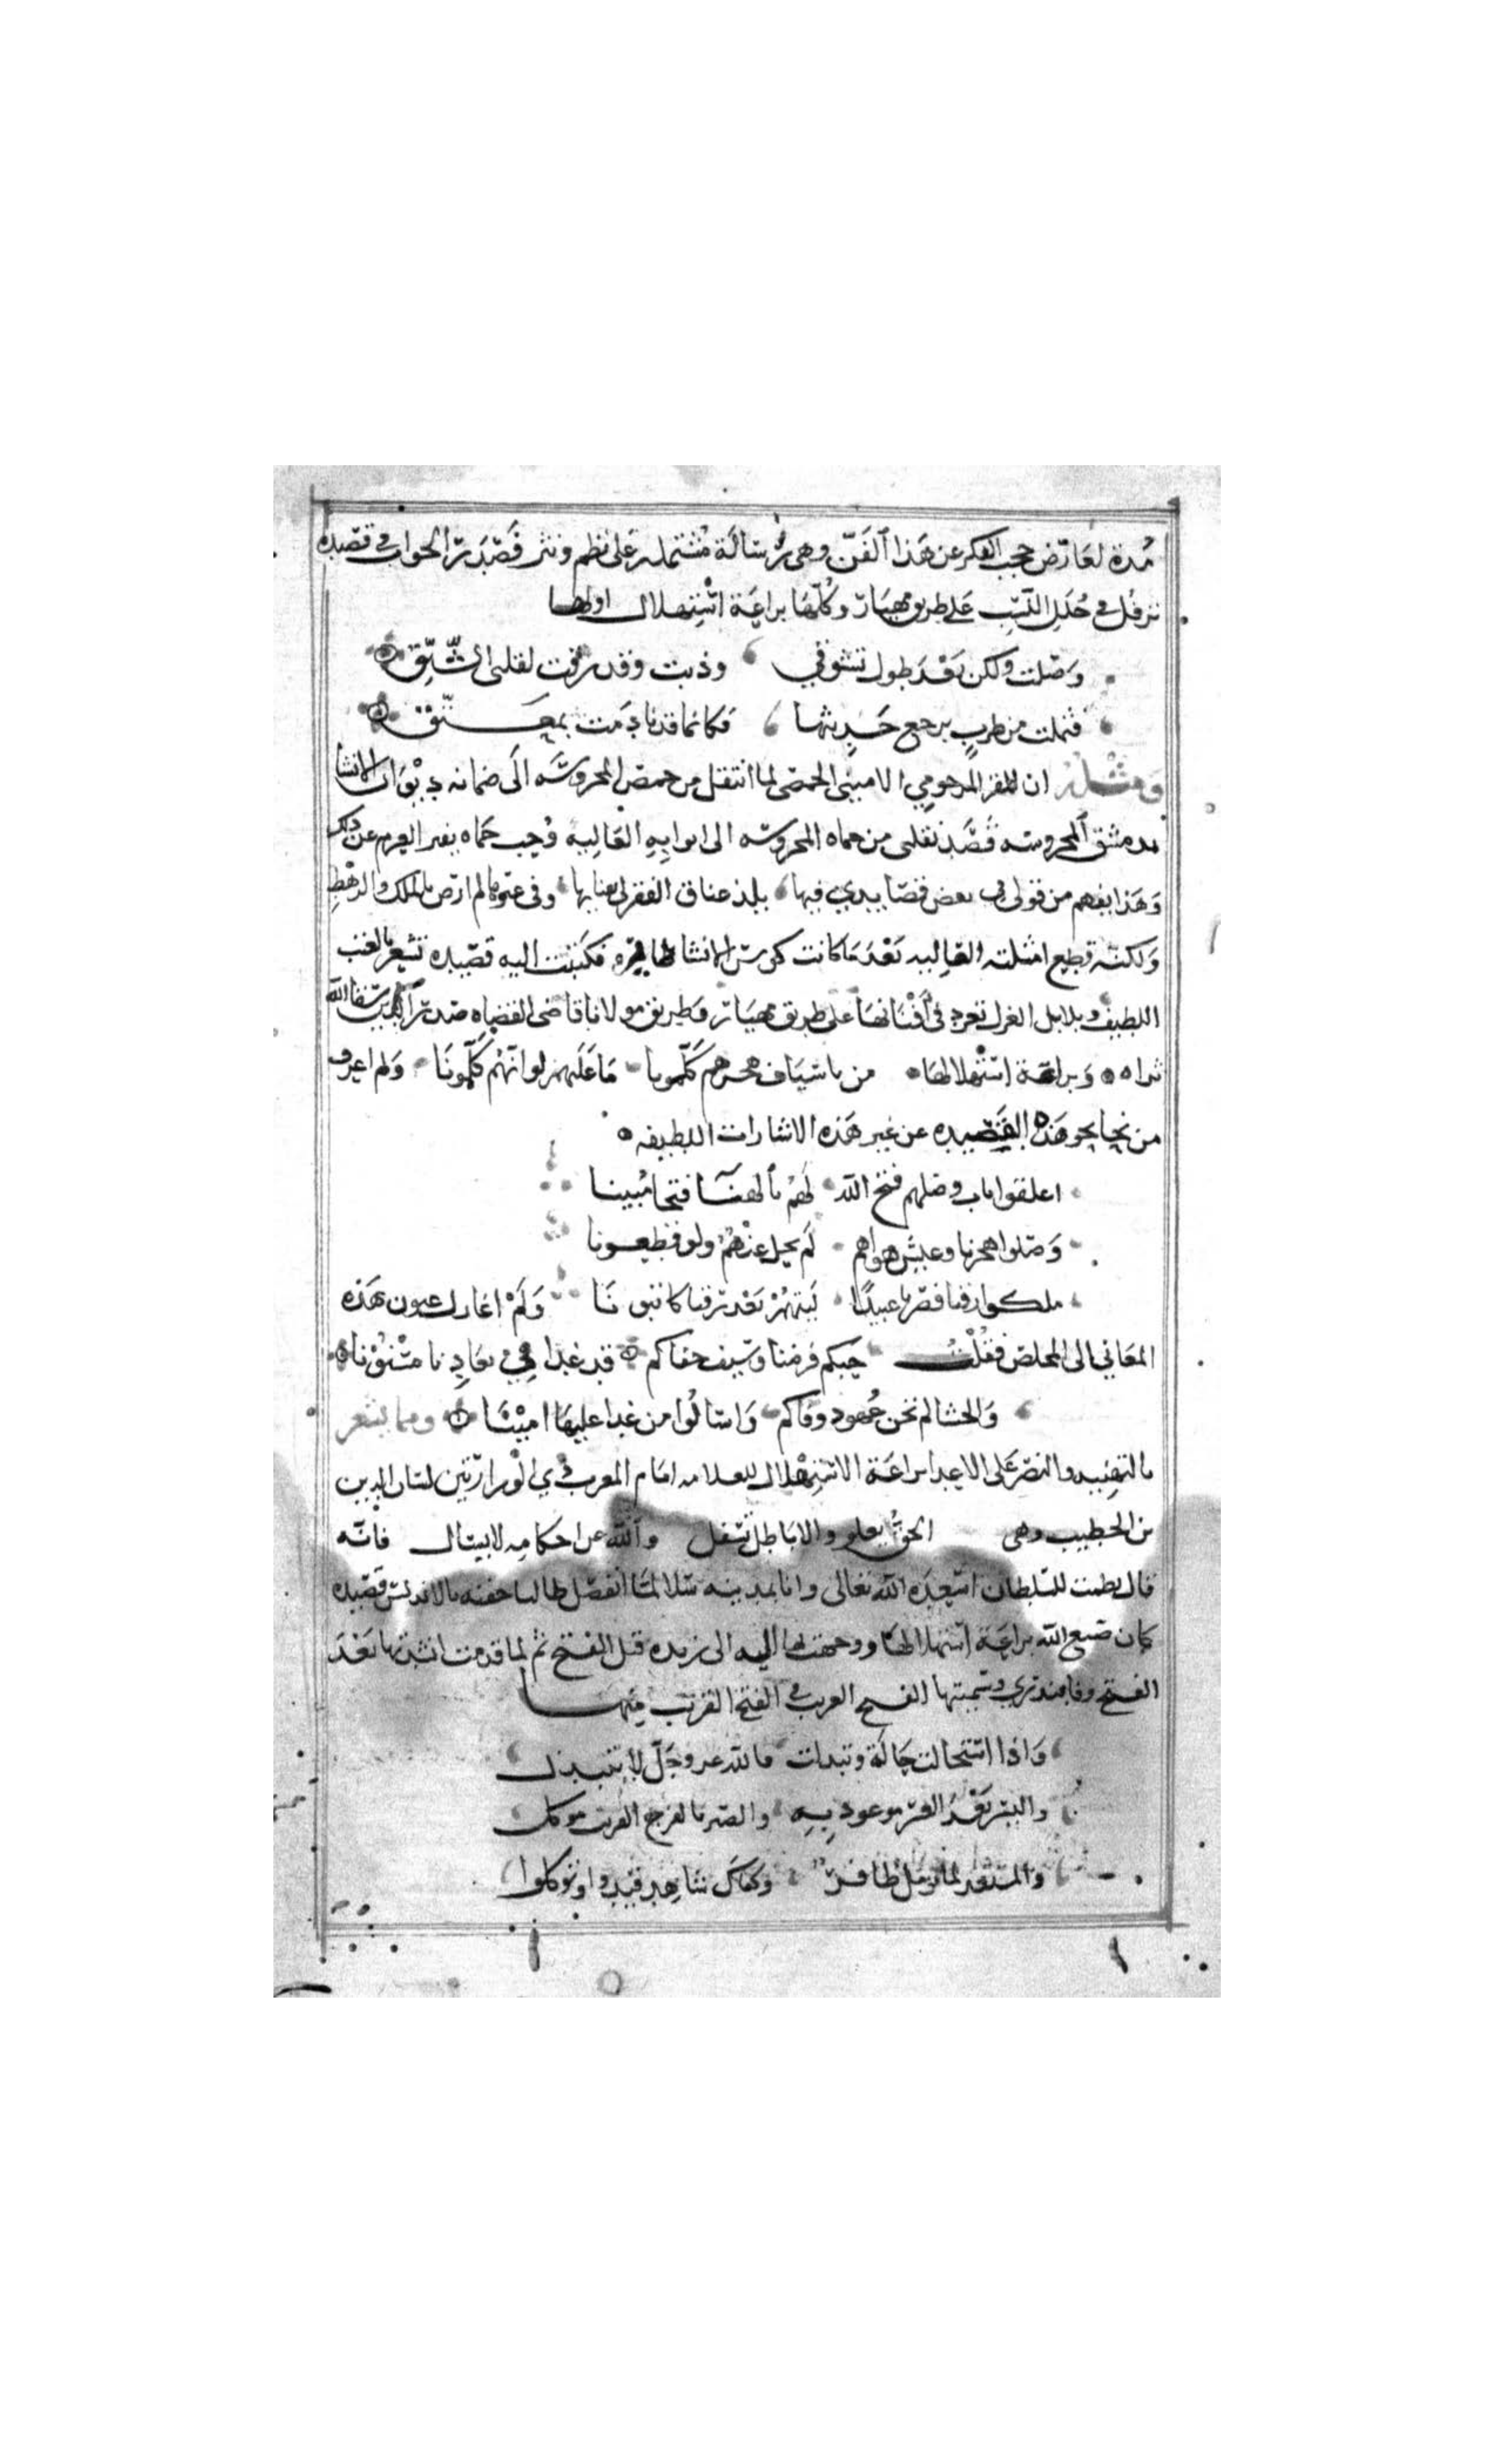 مدة لعارض حجب الفكر عن هذا الفن وهي رسالة مشتملة على نظم ونثر فصدرت الجواب في قصيده
ترفل في حلل النسيب على طريق مهيار وكلها براعة استهلال اولها
وصلت ولكن بعد طول تشوقي وذبت وقد رقت لقلبي الشيق
فثملت من طرب برجع حديثها فكانما قد نادمت بمعتق
ومثله ان المقر المرحومي الاميني الحمصي لما انتقل من حمص المحروسه الى ديوان الانشا
بدمشق المحروسه قصد نقلي من حماه المحروسه الى ابوابه العاليه وحب حماه يفتر العزم عن ذلك
وهذا يفهم من قولي في بعض قصايدي فيها يلذ عناق الفقر لي بفنايها وفي غيرها لم ارض بالملك والرهط
ولكنه قطع امثلته العاليه بعدما كانت كوس الانشا فكتبت اليه قصيده تشعر بالعتب
اللطيف وبلابل الغزل تغرد في افنانها على طريق مهيار وطريق مولانا قاضي القضاه صدر الدين سقا الله
ثراه وبراعة استهلالها من باسياف هجرهم كلمونا ما عليهم لو انهم كلمونا ولم اعرف
من نحا نحو هذه القصيده عن غير هذه الاشارات اللطيفه
اغلقوا باب وصلهم فتح الله لهم بالهنا فتحا مبينا
وصلوا هجرنا وعيش هواهم لم نحل عنهم ولو قطعونا
ملكوا رقنا فصرنا عبيدا ليتهم بعد رقنا كاتبونا ولم اغازل عيون هذه
المعاني الى المخلص فقلت حبكم فرضنا وسيف جفاكم قد غدا في بعادنا مسنونا
والحشا لم نخن عهود وفاكم واسالوا من غدا عليها امينا ومما يشعر
بالتهنيه والنصر على الاعدا براعة الاستهلال للعلامه امام المغرب ذي الوزارتين لسان الدين
بن الخطيب وهي الحق يعلو والاباطل تسفل والله عن احكامه لا يسال فانه
قال نظمت للسلطان اسعده الله تعالى وانا بمدينه سلا لما انفصل طالبا حقه بالاندلس قصيده
كان صنع الله براعة استهلالها ووجهت بها اليه الى رنده قبل الفتح ثم لما قدمت انشدتها بعد
الفتح وفا بنذري وسميتها الفتح الغريب في الفتح القريب منها
واذا استحالت حالة وتبدلت فالله عز وجل لا يتبدل
واليسر بعد العسر موعود به والصبر بالفرج القريب موكل
والمستعد لما يومل ظافر وكفاك شاهد قيدوا وتوكلوا